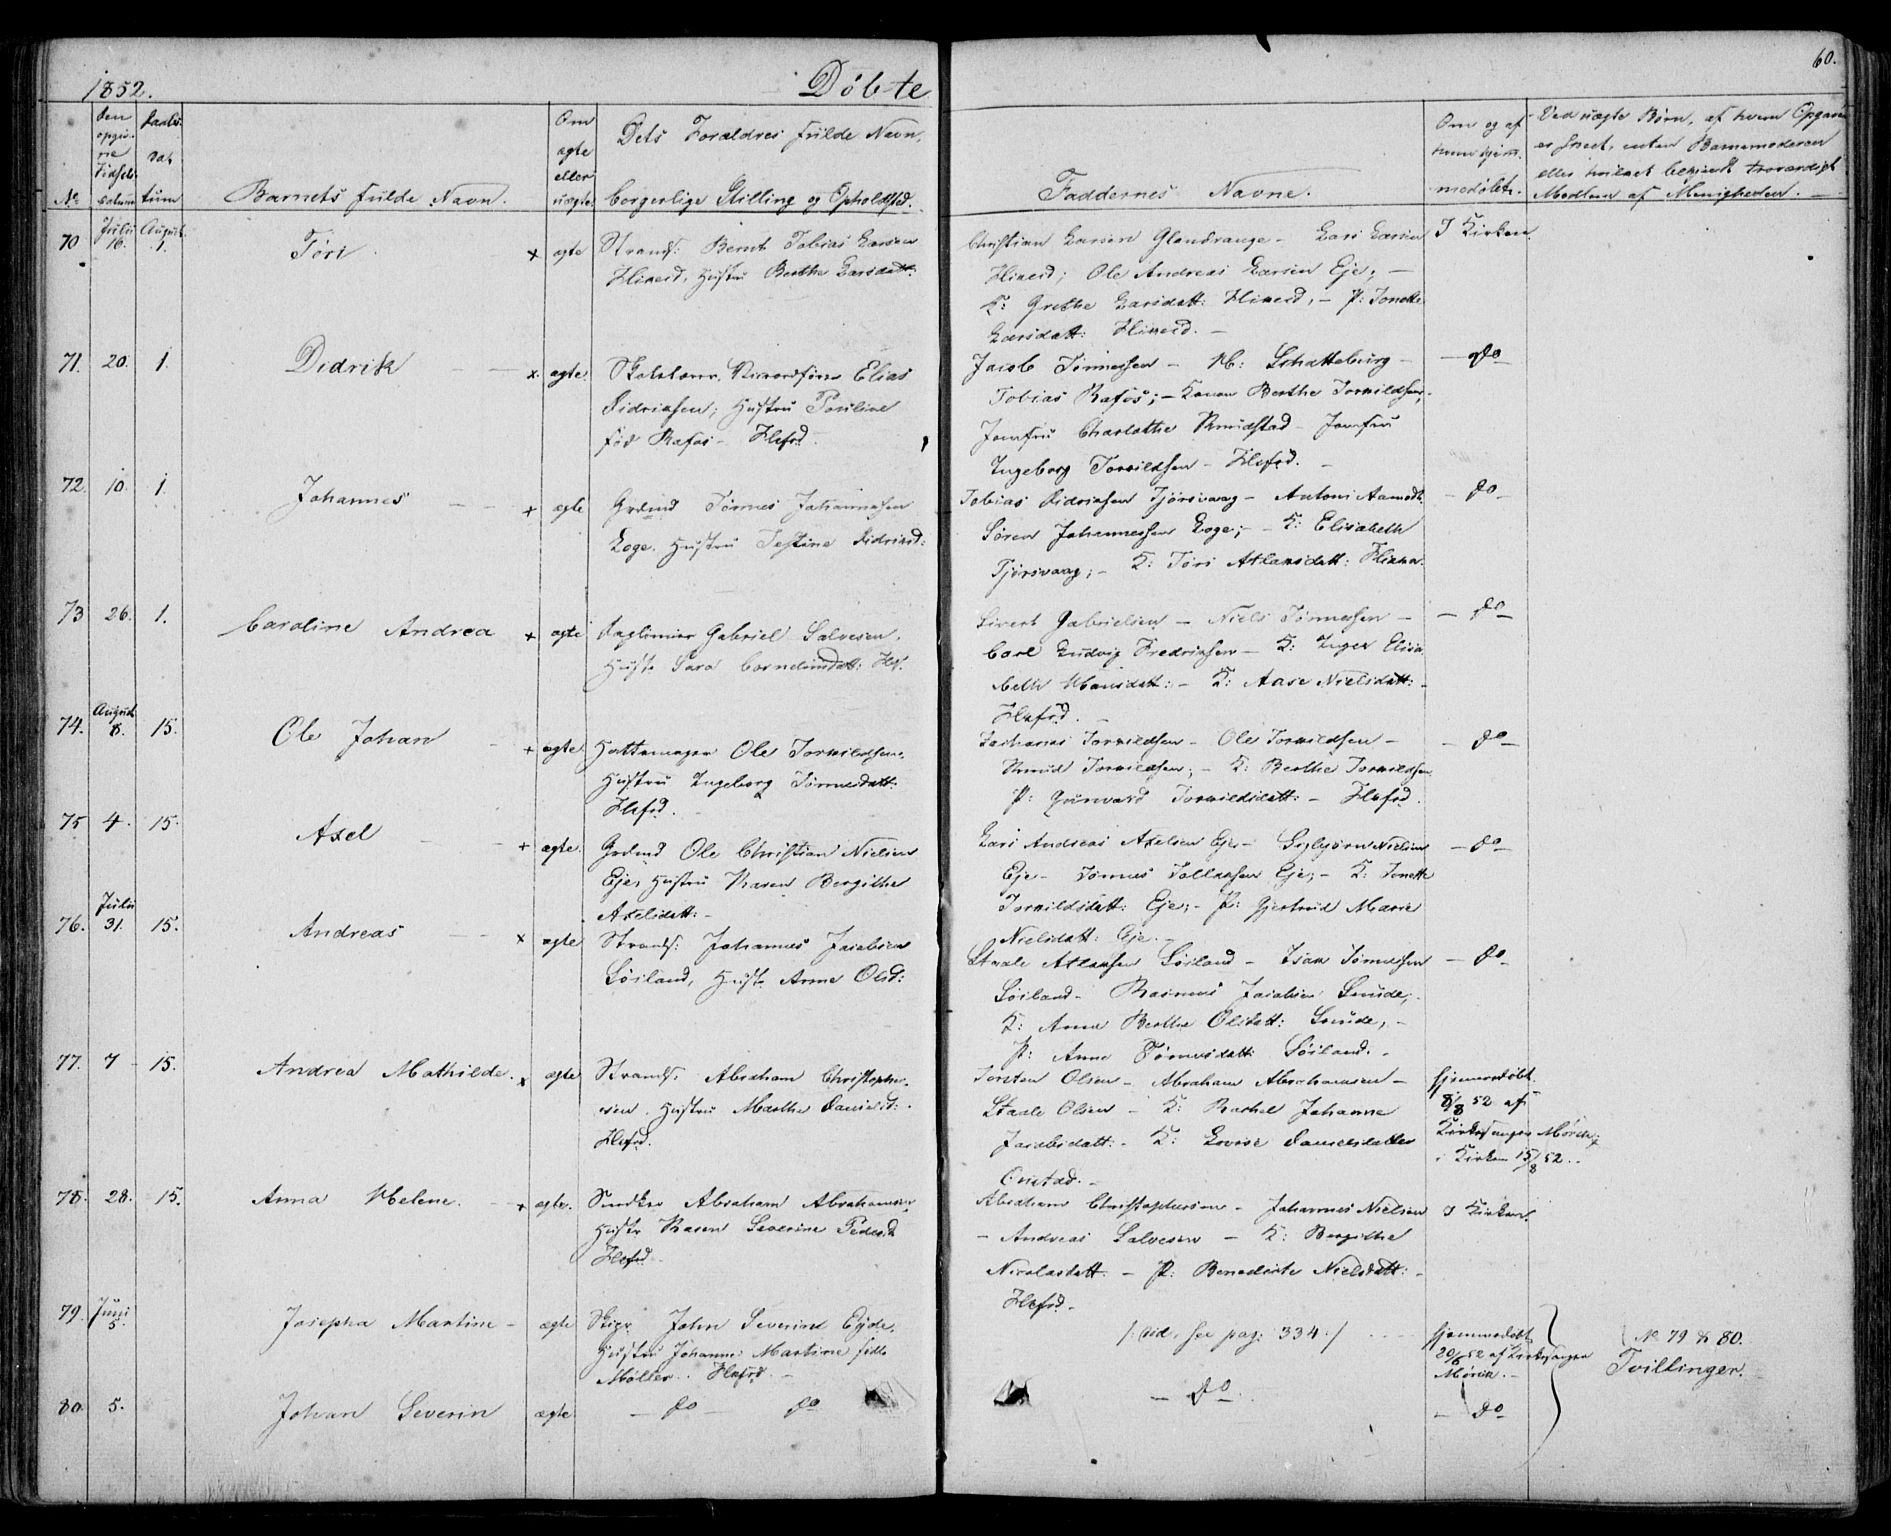 1852.
Døbte
60.
No
Den opgivne Fødselsdatum
Daabsdatum
Barnets fulde Navn.
Om ægte eller uægte
Dets Forældres fulde Navn,
borgerlige Stilling og Opholdsted.
Faddernes Navne.
Om og af hvem hjemmedøbt.
Ved uægte Børn, af hvem Opgaven
er skeet, enten Barnemoderen
eller hvilket bekjendt troværdigt
Medlem af Menigheden.
70 Juli 16. August 1. Tøri x ægte Strands: Bernt Tobias Larsen
Hustru Berthe Larsdatt:
Christian Larsen Glandrange - Lars Larsen
Ole Andreas Larsen Eje; -
K: Grethe Larsdatt: - P: Tonette
Larsdatt:
I Kirken.
71. 20. 1. Didrik x. ægte. Elias
Didriksen; Hustru Pouline
fød Rafos - Flefrd.
Jacob Tønnessen - H: Schatteburg -
Tobias Rafos; - Konen Berthe Torkildsen,
Jomfru Charlothe Knudstad - Jomfru
Ingeborg Torkildsen - Flefrd. -
- do
72. 10. 1. Johannes + ægte Grdmd Tønnes Johannesen
Loge. Hustru Testine Didriksd:
Tobias Didriksen Tjørsvaag - Antoni Aamodt
Søren Johannessen Loge; - K: Elisabeth
Tjørsvaag; - K: Tøri Atlaksdatt:
- do -
73 26. 1. Caroline Andrea + ægte Dagleier Gabriel Salvesen,
Hustr Sara Corneliusdatt: Flf.
Sivert Gabrielsen - Niels Tønnessen -
Carl Ludvig Fredriksen - K: Inger Elisa
beth Hansdatt: - K: Aase Nielsdatt: -
Flefrd. -
- do -
74. August 8. 15. Ole Johan - + ægte. Hattemager Ole Torkildsen.
Hustru Ingeborg Tønnesdatt:
Flefrd.
Zacharias Torkildsen - Ole Torkildsen -
Knud Torkildsen; - K: Berthe Torkildsen
P: Gunvard Torkildsdatt: - Flefrd.
- do -
75 4. 15. Axel + ægte. Grdmd Ole Christian Nielsen
Eje, Hustru Karen Bergithe
Axelsdatt: -
Lars Andreas Axelsen Eje - Sigbjørn Nielsen
Eje - Tønnes Tollaksen Eje; - K: Tonette
Torkildsdatt: Eje; - P: Gjertrud Marie
Nielsdatt: Eje. -
- do -
76. Juli 31. 15. Andreas x ægte Strands: Johannes Jacobsen
Søiland, Hust. Anne Olsd:
Staale Atlaksen Søiland - Isak Tønnessen
Søiland - Rasmus Jacobsen Snude; -
K: Anne Berthe Olsdatt: Snude; -
P: Anne Tønnesdatt: Søiland. -
- do -
77. 7 - 15. Andrea Mathilde. x ægte Strands: Abraham Christopher-
sen. Hustru Marthe Danielsd: -
Flefrd.
Torsten Olsen - Abraham Abrahamsen -
Staale Olsen - K: Rachel Johanne
Jacobsdatt: - K: Lovise Danielsdatter
hjemmedøbt
8/8 52 af
Kirkesanger Mørch;
i Kirken 15/8 52.
78. 28. 15. Anna Helene. + ægte. Snedker Abraham Abrahamsen
Hustr Karen Severine Pedersd.
Flefrd.
Abraham Christophersen - Johannes Nielsen
- Andreas Salvesen - K: Bergithe
Nicolasdatt. - P: Benedicte Nielsdatt: -
Flefrd -
I Kirken.
79. Juni 5. Josepha Martine - ægte Skipr John Severind Eyde,
Hustru Johanne Martine født
Møller. Flefrd. -
/: vid. see pag: 334 :/
hjemmedøbt
20/6 52 af Kirkesanger
Mørch. -
No 79 & 80.
Tvillinger.
80. 5. Johan Severin ægte - do - do
- do.
- do